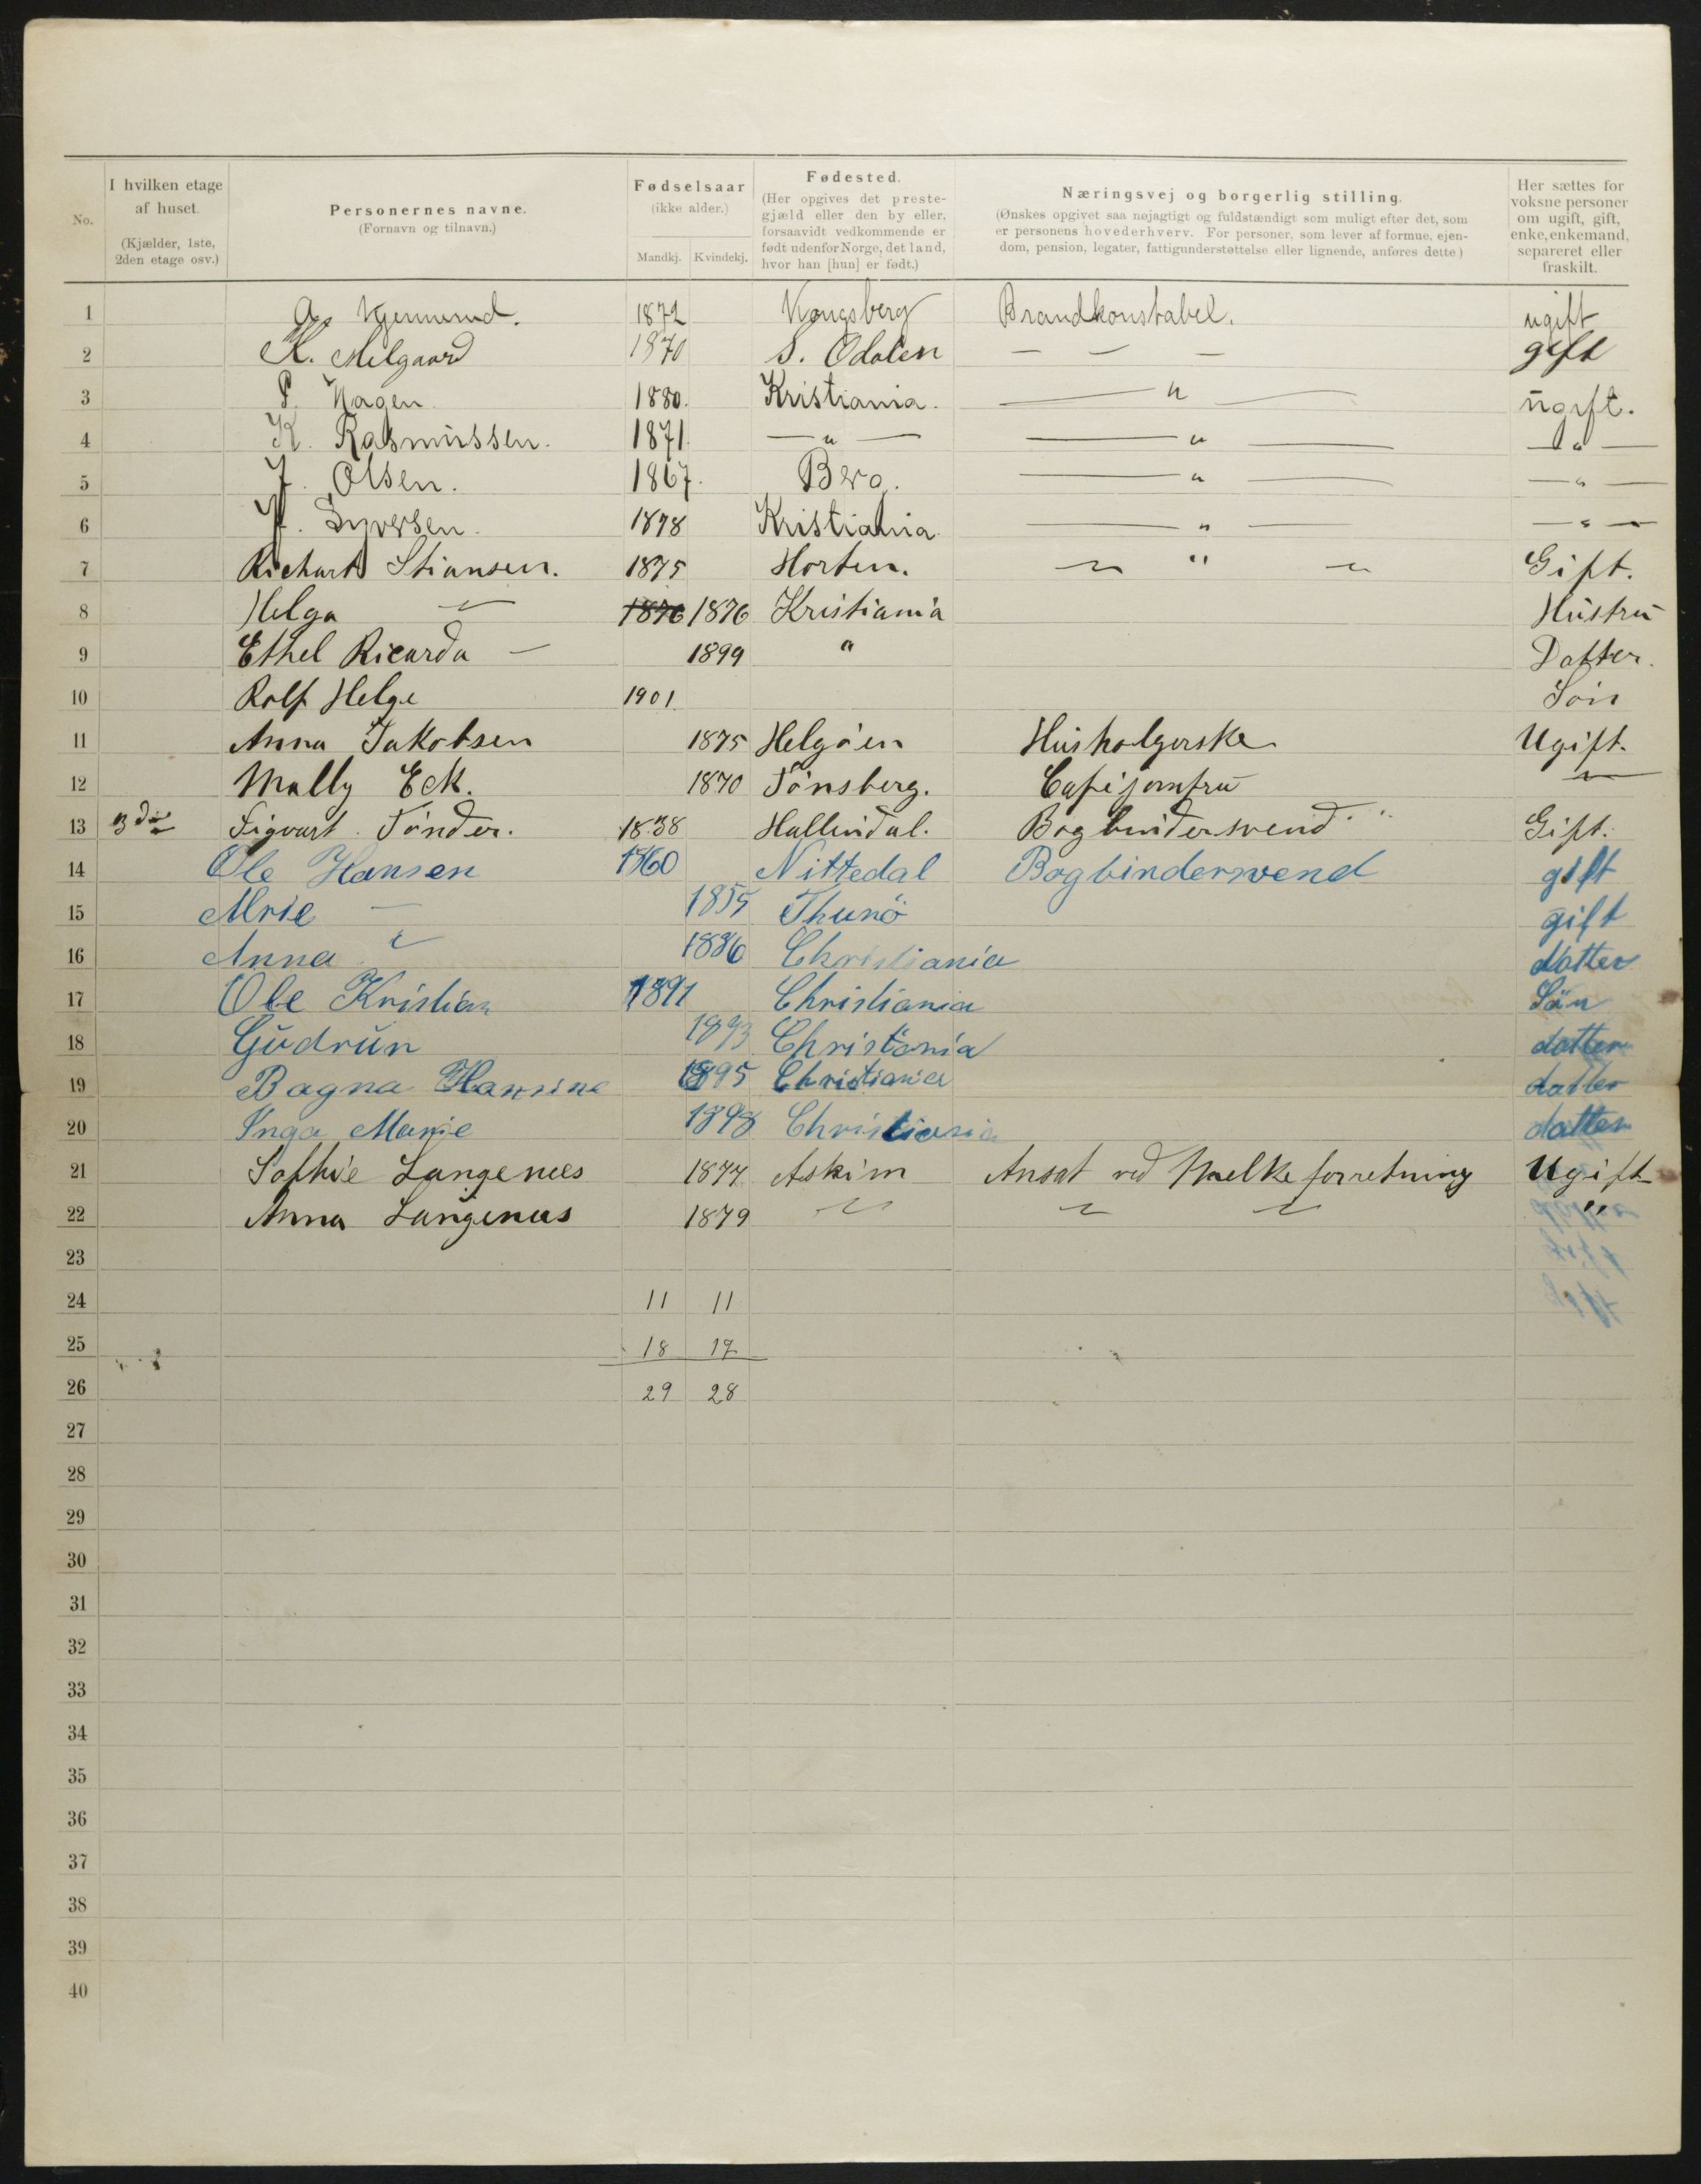 No. | I hvilken etage af huset. (Kjælder, 1ste, 2den etage osv.) | Personernes navne. (Fornavn og tilnavn.) | Fødselsaar (ikke alder.) Mandkj. Kvindekj. | Fødested. (Her opgives det prestegjæld eller den by eller, forsaavidt vedkommende er født udenfor Norge, det land, hvor han [hun] er født.) | Næringsvej og borgerlig stilling. (Ønskes opgivet saa nøjagtigt og fuldstændigt som muligt efter det, som er personens hovederhverv. For personer, som lever af formue, ejendom, pension, legater, fattigunderstøttelse eller lignende, anføres dette) | Her sættes for voksne personer om ugift, gift, enke, enkemand, separeret eller fraskilt.
1 A. 1872 Kongsberg Brandkonstabel. ugift
2 K. Melgaard 1870 S. Odalen — — — gift
3 P. Hagen 1880. Kristiania. — " — ugift.
4 K. Rasmussen. 1871. — " — — " — — " —
5 J. Olsen. 1867. Berg. — " — — " —
6 Syversen. 1878 Kristiania — " — — " —
7 Richard Stiansen. 1875 Horten. — " — Gift.
8 Helga — 1876 1876 Kristiania Hustru
9 Ethel Ricarda — 1899 " Datter.
10 Rolf Helge 1901 Søn
11 Anna Jakobsen 1875 Helgøen Husholgerske Ugift.
12 Mally Eck. 1870 Tønsberg. Cafejomfru —
13 3die Sigvart Tønder. 1838 Hallindal. Bogbindersvend Gift.
14 Ole Hansen 1860 Nittedal Bogbindersvend gift
15 Mrie — 1855 Thunö gift
16 Anna — 1886 Christiania datter
17 Ole Kristian 1891 Christiania Sön
18 Gudrun 1893 Christania datter
19 Bagna Hansine 1895 Christiania datter
20 Inga Marie 1898 Christiania datter
21 Sofhie Langenæs 1877 Askim Ansat ved Melkeforretning Ugift
22 Anna Langenæs 1879 — — — "
23
24 11 11
25 18 17
26 29 28
27
28
29
30
31
32
33
34
35
36
37
38
39
40